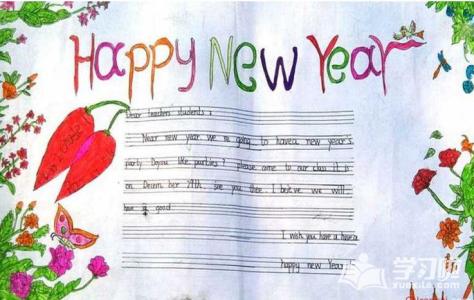 Happy New Year
Dear teachers students :
Near new year we re going to havea new year's
party Doyou like parties ? please come to our class it is
on Decem ber 29th. see you then I belive we will
have a good
I wish you have a have a
happy new Year !
学习啦